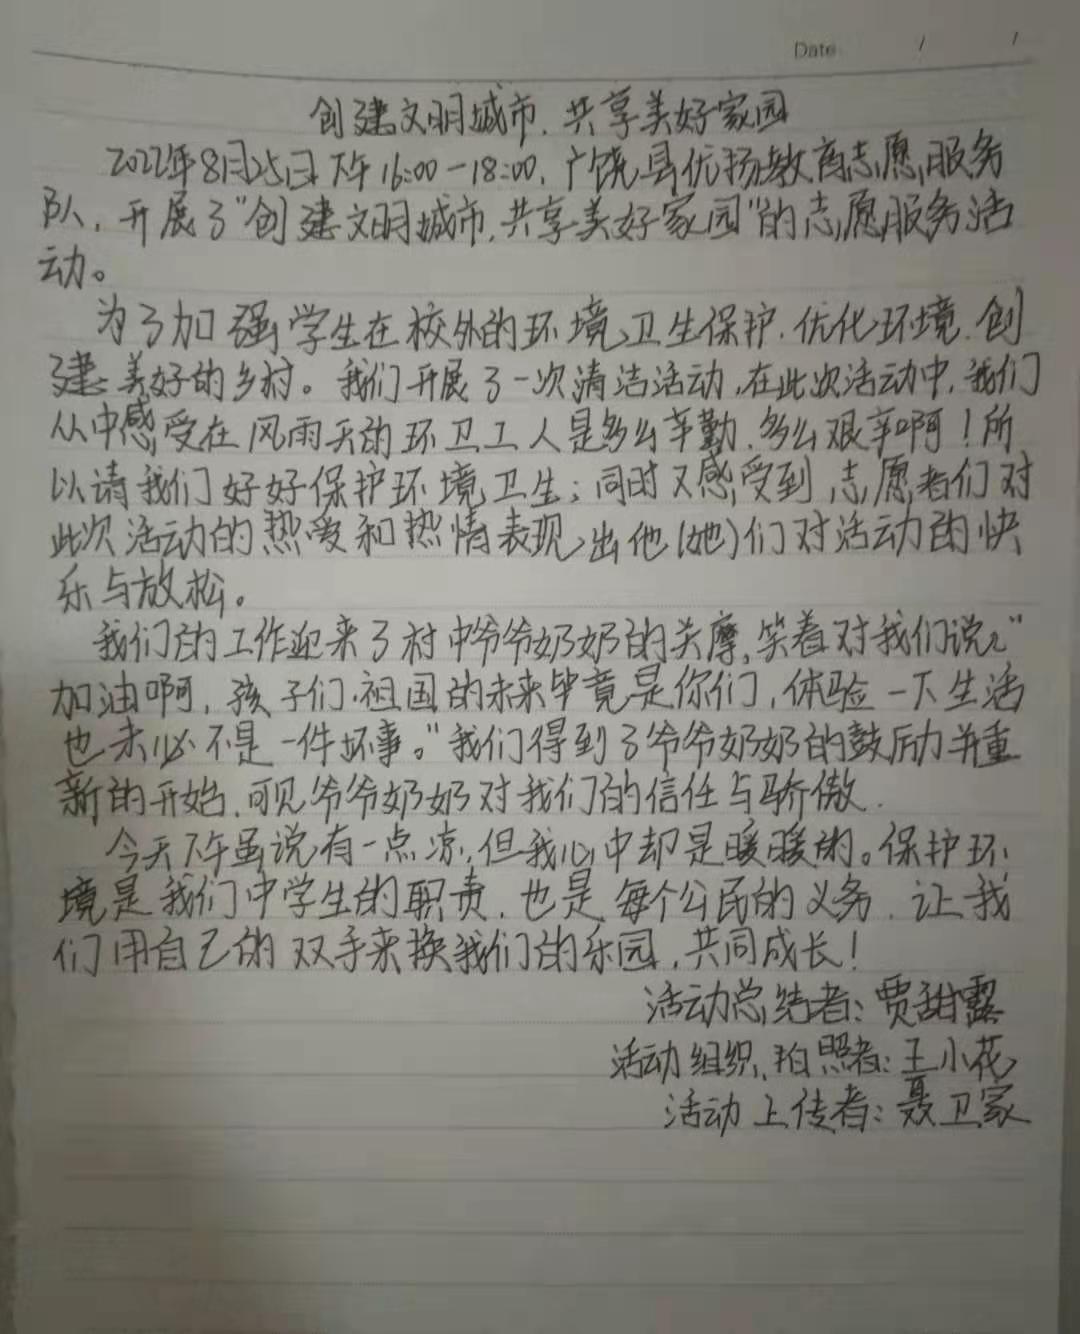 Date / /
创建文明城市、共享美好家园
2022年8月25日下午16:00-18:00,广饶县优扬教育志愿服务
队,开展了"创建文明城市,共享美好家园"的志愿服务活
动。
为了加强学生在校外的环境卫生保护,优化环境,创
建美好的乡村。我们开展了一次清洁活动,在此次活动中,我们
从中感受在风雨天的环卫工人是多么辛勤、多么艰辛啊!所
以请我们好好保护环境卫生;同时又感受到志愿者们对
此次活动的热爱和热情表现出他(她)们对活动的快
乐与放松。
我们的工作迎来了村中爷爷奶奶的关摩,笑着对我们说:"
加油啊,孩子们,祖国的未来毕竟是你们,体验一下生活
也未必不是一件坏事。"我们得到了爷爷奶奶的鼓励并重
新的开始,可见爷爷奶奶对我们的信任与骄傲.
今天下午虽说有一点凉,但我心中却是暖暖的。保护环
境是我们中学生的职责,也是每个公民的义务,让我
们用自己的双手来换我们的乐园,共同成长!
活动总结者:贾甜露
活动组织、拍照者:王小花
活动上传者:聂卫家